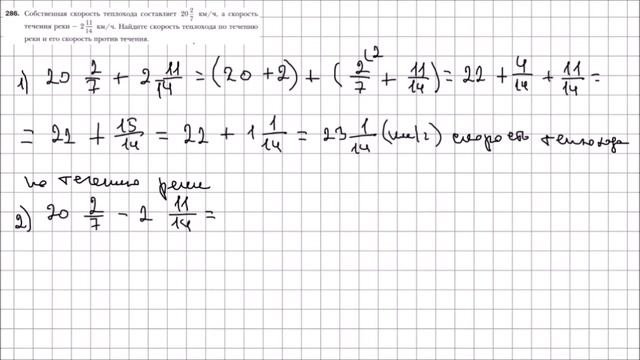 286. Собственная скорость теплохода составляет 20 2/7 км/ч, а скорость
течения реки – 2 11/14 км/ч. Найдите скорость теплохода по течению
реки и его скорость против течения.
1) 20 2/7 + 2 11/14 = (20 + 2) + (2/7 (2 + 11/14) = 22 + 4/14 + 11/14 =
= 22 + 15/14 = 22 + 1 1/14 = 23 1/14 (км/ч) скорость теплохода
по течению реки
2) 20 2/7 - 2 11/14 =